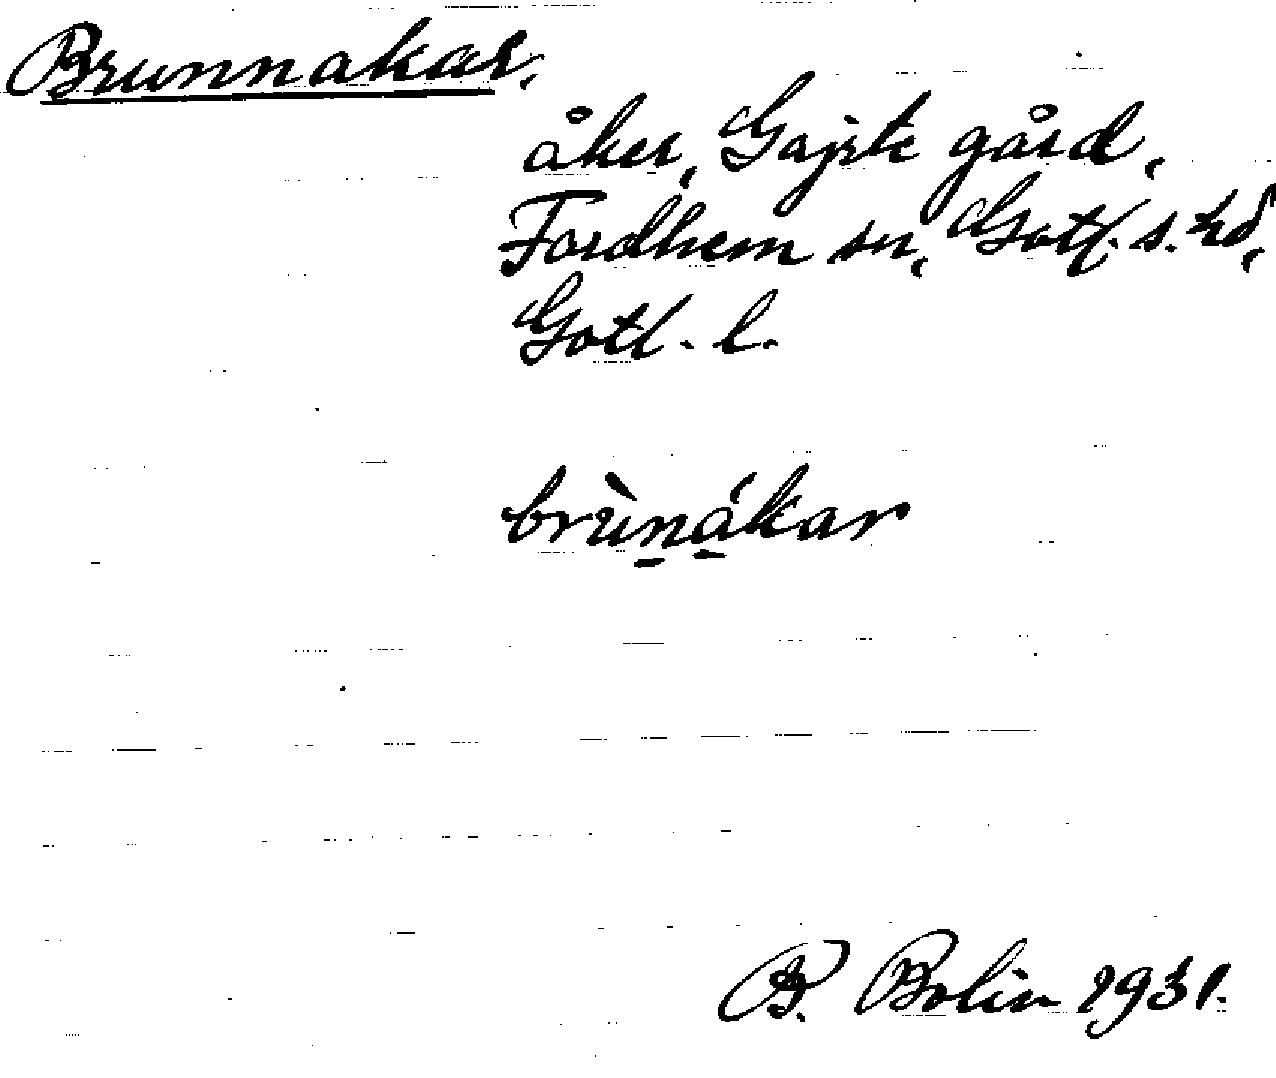 Brunnakar,
åker, Gajste gård,
Fardhem sn, Gotl. s. hd,
Gotl. l.
brùn̲á̲kar
B. Bolin 1931.